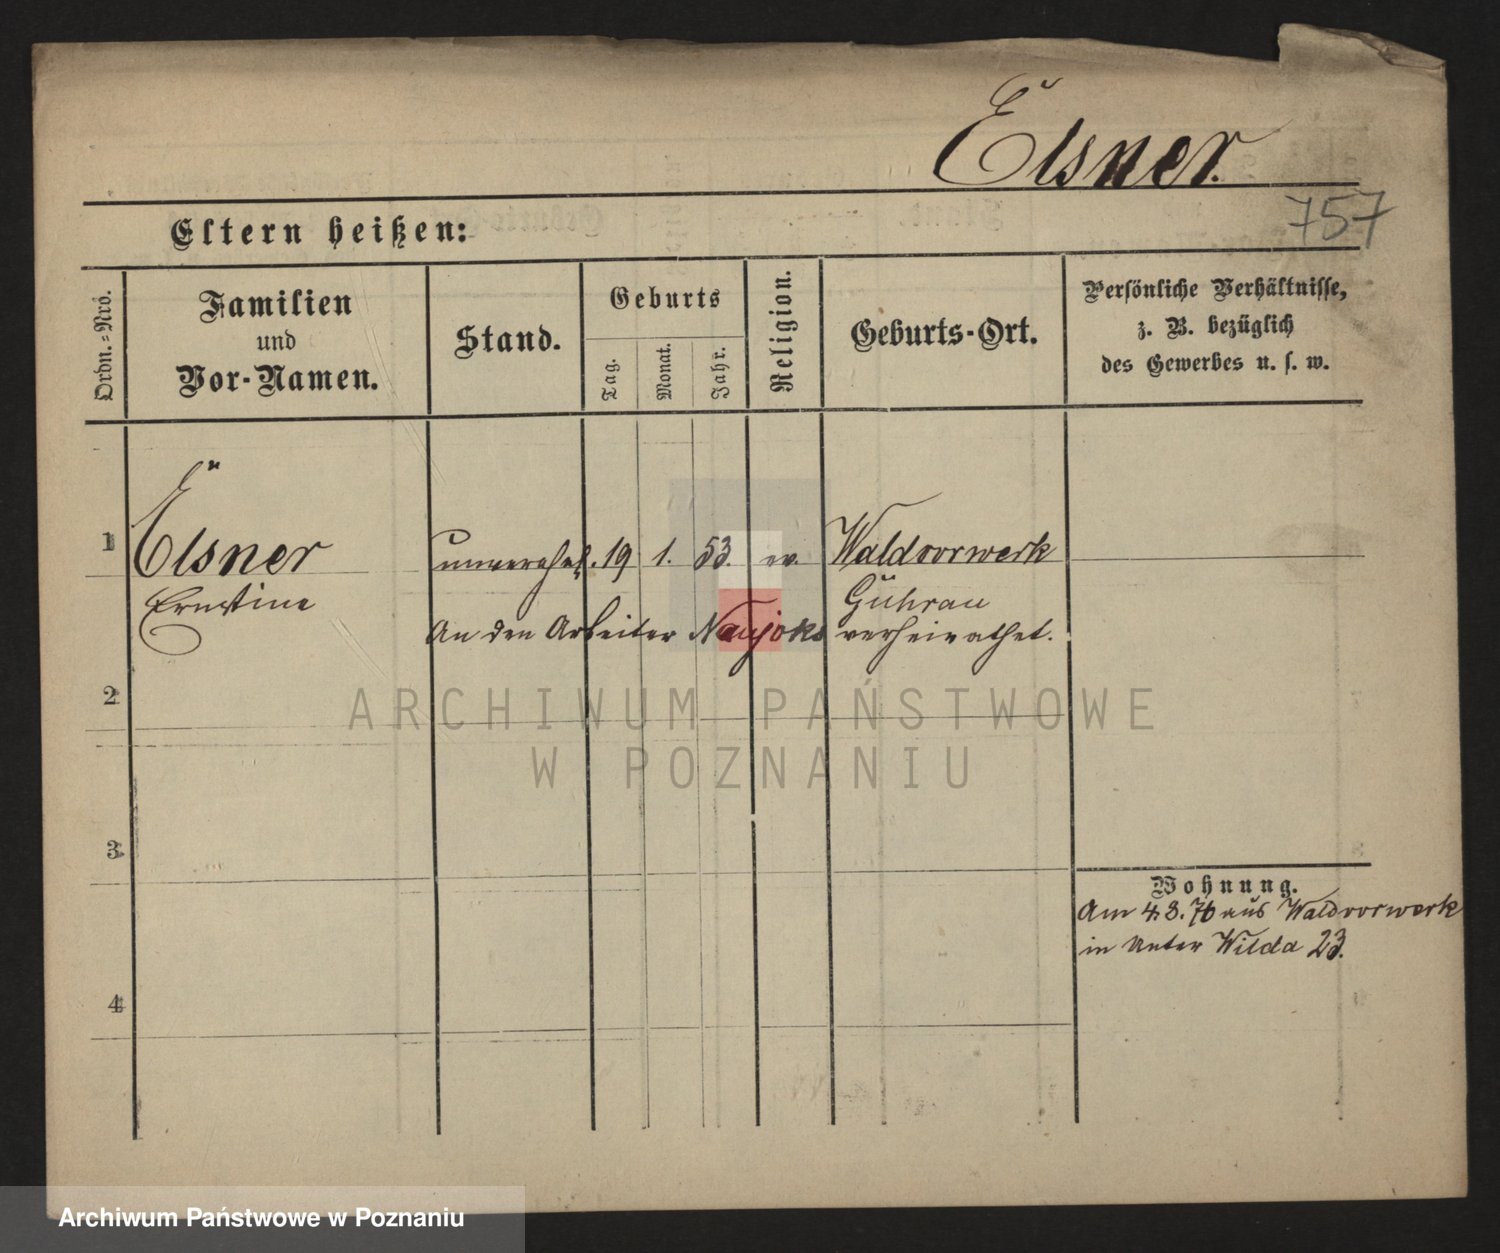 Elsner.
757
Eltern heißen:
Ordn.-Nro.
Familien
und
Vor-Namen.
Stand.
Geburts
Tag.
Monat.
Jahr.
Religion.
Geburts-Ort.
Persönliche Verhältnisse,
z. B. bezüglich
des Gewerbes u. s. w.
1 Elsner unverehel. 19 1. 53. ev. Waldvorwerk
Ernstine Guhrau
An den Arbeiter Naujoks verheirathet.
2
ARCHIWUM PAŃSTWOWE
W POZNANIU
3
Wohnung.
Am 4.8.76 aus Waldvorwerk
in Unter Wilda 23.
4
Archiwum Państwowe w Poznaniu